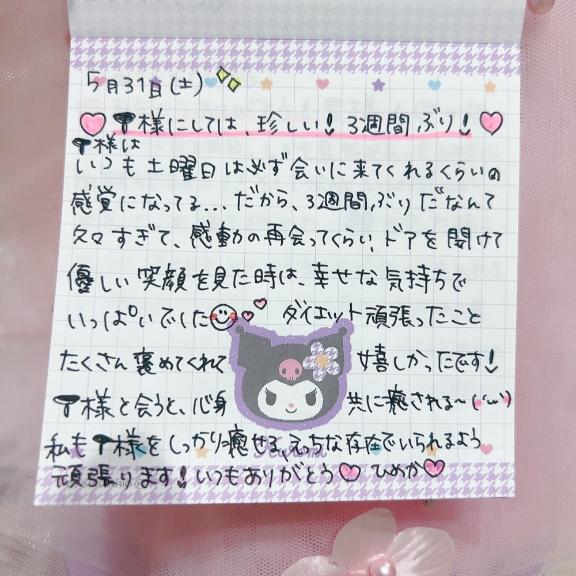 5月31日(土)
T様にしては、珍しい! 3週間ぶり!
T様は
いつも土曜日は必ず会いに来てくれるくらいの
感覚になってる... だから、3週間ぶりだなんて
久々すぎて、感動の再会ってくらい、ドアを開けて
優しい笑顔を見た時は、幸せな気持ちで
いっぱいでした ダイエット頑張ったこと
たくさん褒めてくれて 嬉しかったです!
T様と会うと、心身 共に癒される〜(´ω`)
私もT様をしっかり癒せる、えっちな存在でいられるよう
頑張ります! いつもありがとう♡ ひめか♡